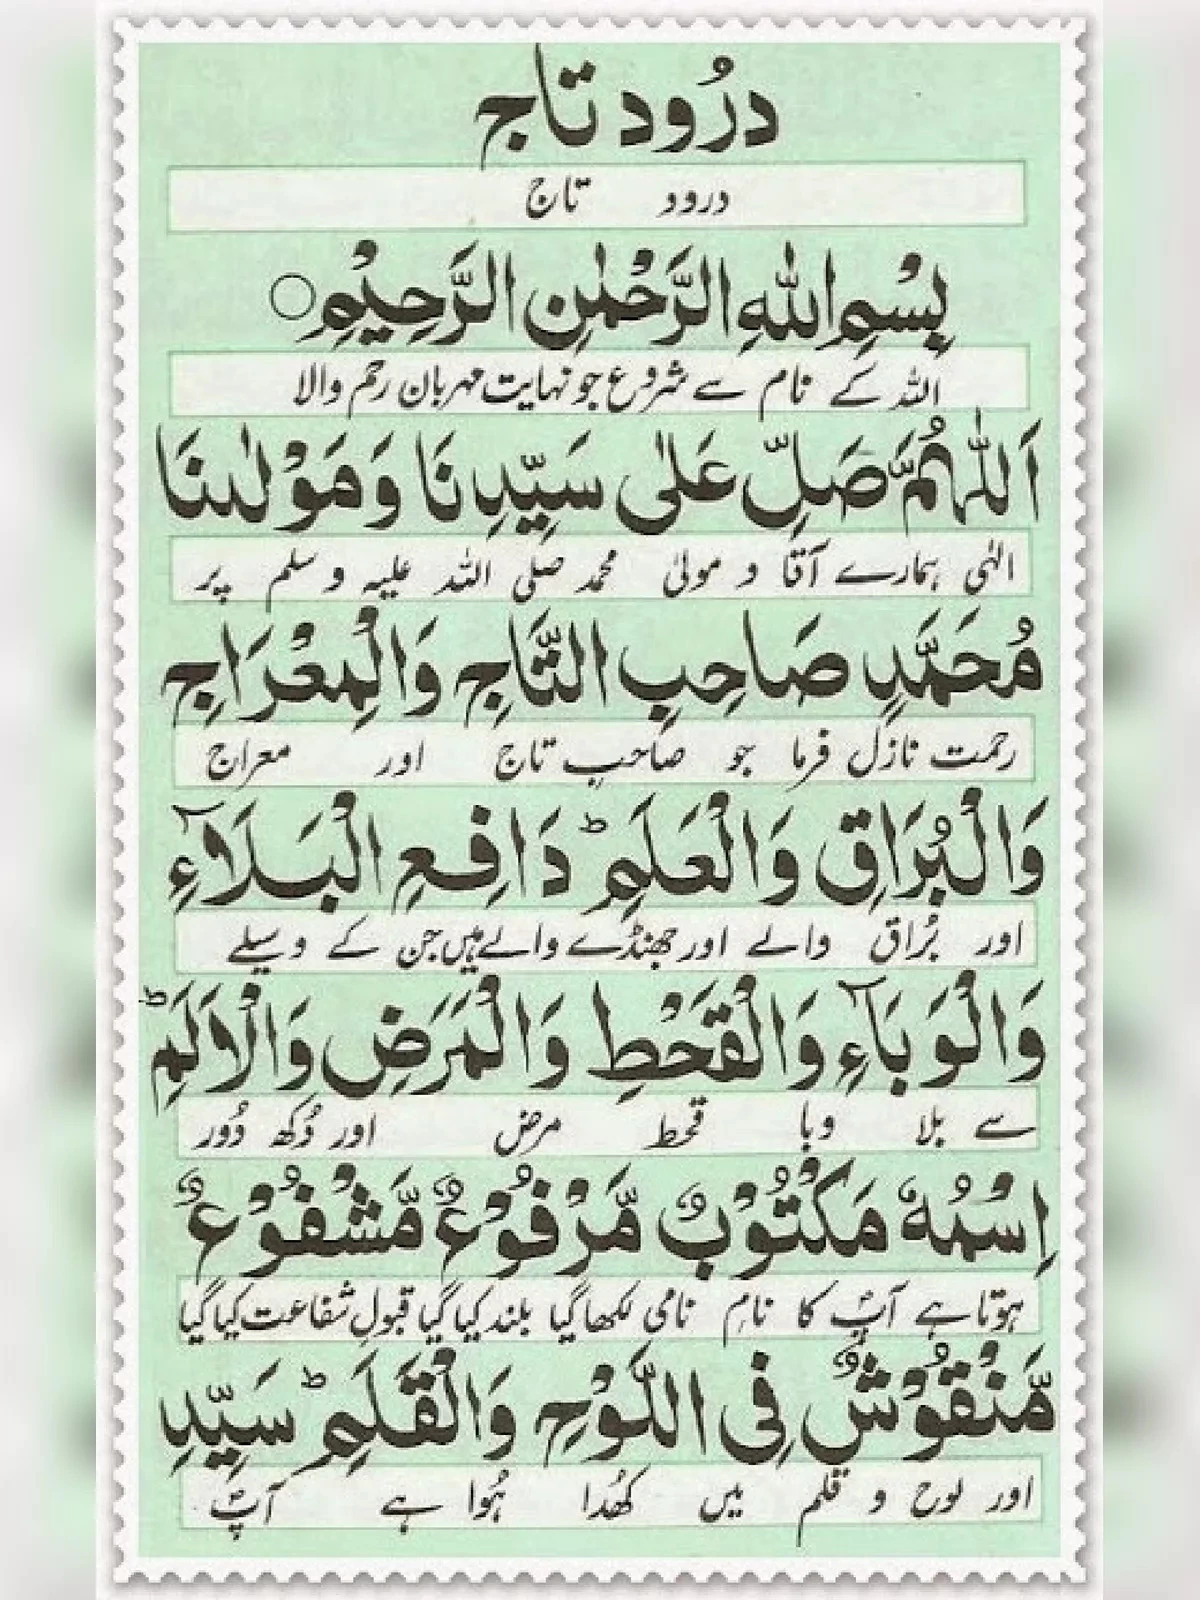 درُود تاج
درود تاج
بِسْمِ اللهِ الرَّحْمٰنِ الرَّحِيْمِ○
اللہ کے نام سے شروع جو نہایت مہربان رحم والا
اَللّٰهُمَّ صَلِّ عَلٰى سَيِّدِنَا وَمَوْلٰىنَا
الٰہی ہمارے آقا و مولیٰ محمد صلی اللہ علیہ وسلم پر
مُحَمَّدٍ صَاحِبِ التَّاجِ وَالْمِعْرَاجِ
رحمت نازل فرما جو صاحبِ تاج اور معراج
وَالْبُرَاقِ وَالْعَلَمِ ؕ دَافِعِ الْبَلَآءِ
اور بُراق والے اور جھنڈے والے ہیں جن کے وسیلے
وَالْوَبَآءِ وَالْقَحْطِ وَالْمَرَضِ وَالْاَلَمِ ؕ
سے بلا وبا قحط مرض اور دُکھ دُور
اِسْمُهٗ مَكْتُوْبٌ مَّرْفُوْعٌ مَّشْفُوْعٌ
ہوتا ہے آپؐ کا نامِ نامی لکھا گیا بلند کیا گیا قبولِ شفاعت کیا گیا
مَّنْقُوْشٌ فِى اللَّوْحِ وَالْقَلَمِ ؕ سَيِّدِ
اور لوح و قلم میں کھُدا ہُوا ہے آپؐ